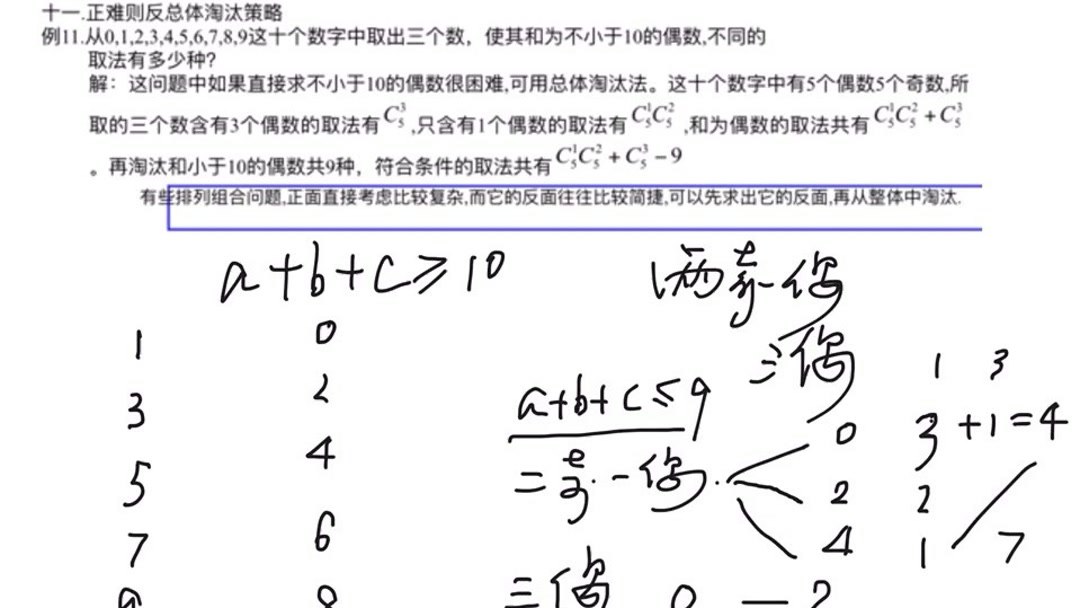 十一.正难则反总体淘汰策略
例11.从0,1,2,3,4,5,6,7,8,9这十个数字中取出三个数，使其和为不小于10的偶数,不同的
取法有多少种?
解：这问题中如果直接求不小于10的偶数很困难,可用总体淘汰法。这十个数字中有5个偶数5个奇数,所
取的三个数含有3个偶数的取法有C₅³,只含有1个偶数的取法有C₅¹C₅²,和为偶数的取法共有C₅¹C₅²+C₅³
。再淘汰和小于10的偶数共9种，符合条件的取法共有C₅¹C₅²+C₅³-9
有些排列组合问题,正面直接考虑比较复杂,而它的反面往往比较简捷,可以先求出它的反面,再从整体中淘汰.
a+b+c≥10 两奇一偶
1 0
三偶 1 3
3 2
a+b+c≤9
0 3+1=4
5 4
二奇一偶
2 2
4 1 7
7 6
9 8
三偶 0 — 2